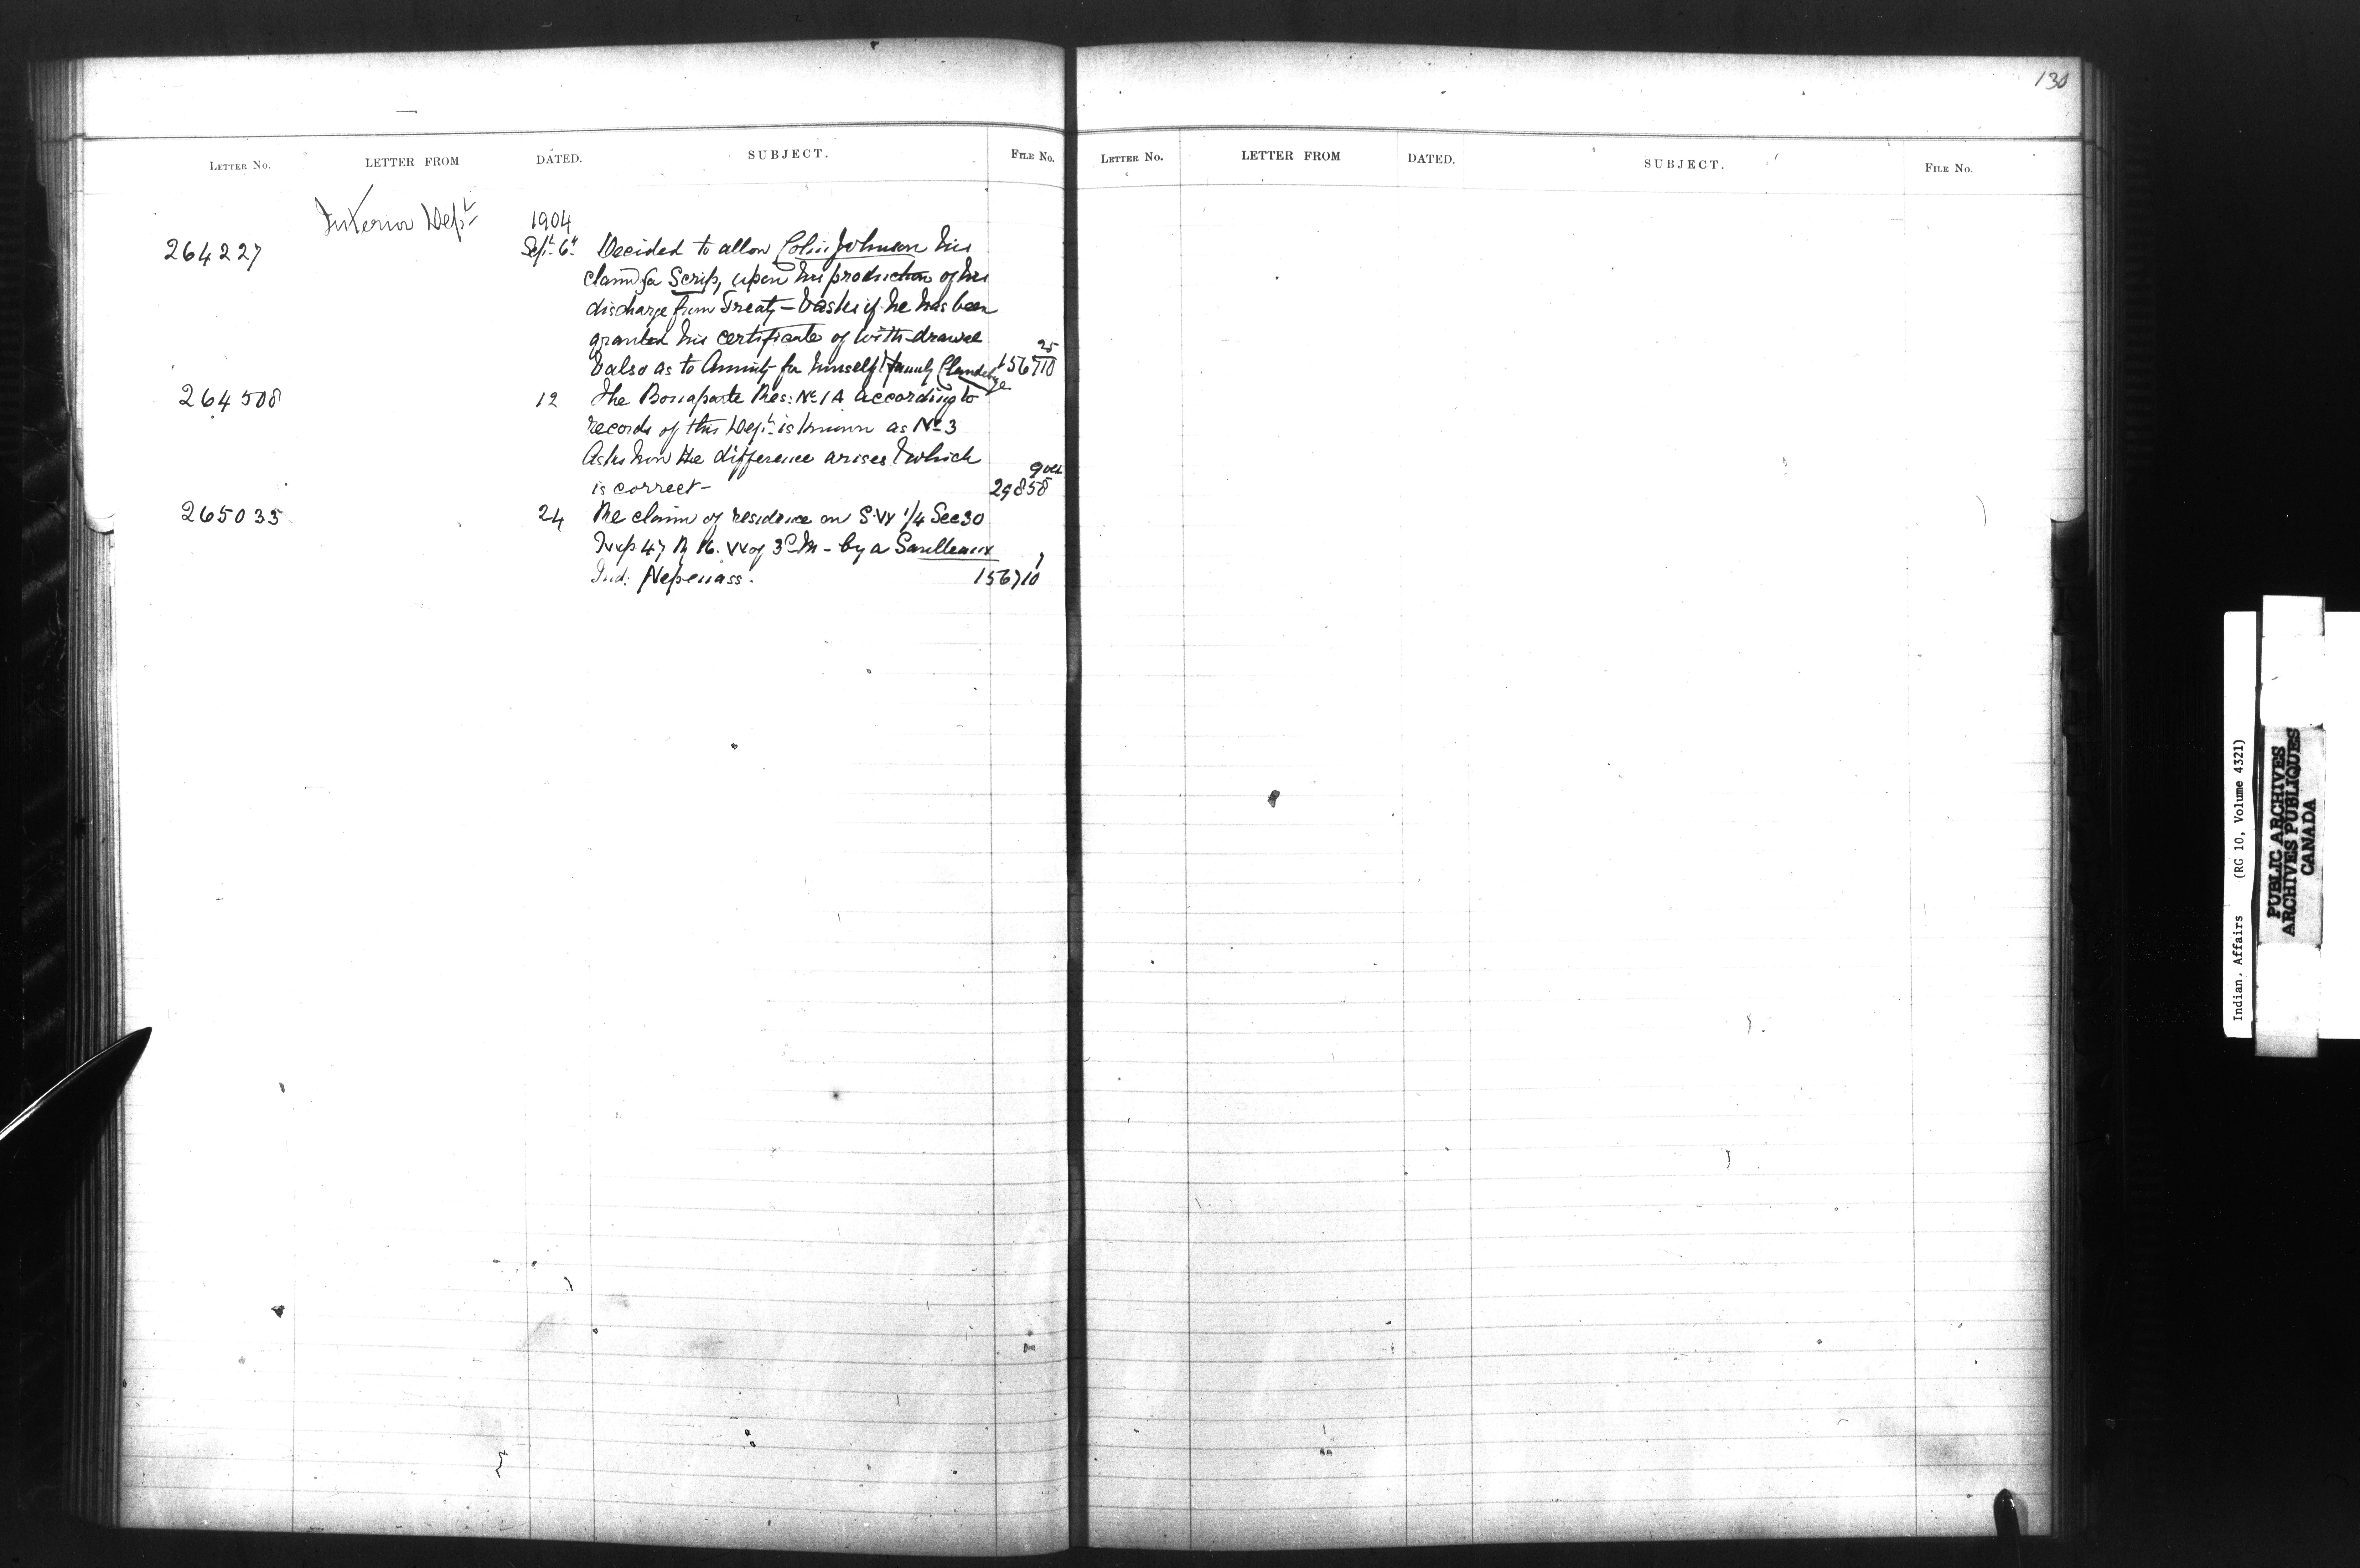 130
LETTER NO. LETTER FROM DATED. SUBJECT. FILE NO.
LETTER NO. LETTER FROM DATED. SUBJECT. FILE NO.
Interior Dept 1904
264227 Sept. 6" Decided to allow Colin Johnson his
claim for Scrip, upon his production of his
discharge from Treaty - & asks if he has been
granted his certificate of with-drawal 25
& also as to Annuity for himself & family 156710
264508 12 The Bonaparte Res: No 1A according to
records of this Dept. is known as No 3
Asks how the difference arises & which
is correct - 29858
265035 24 Re claim of residence on S.W 1/4 Sec 30
Twp 47 R 16. W of 3d M - by a Saulteaux 7
Ind: Nepenass. 156710
Indian Affairs (RG 10, Volume 4321)
PUBLIC ARCHIVES
ARCHIVES PUBLIQUES
CANADA